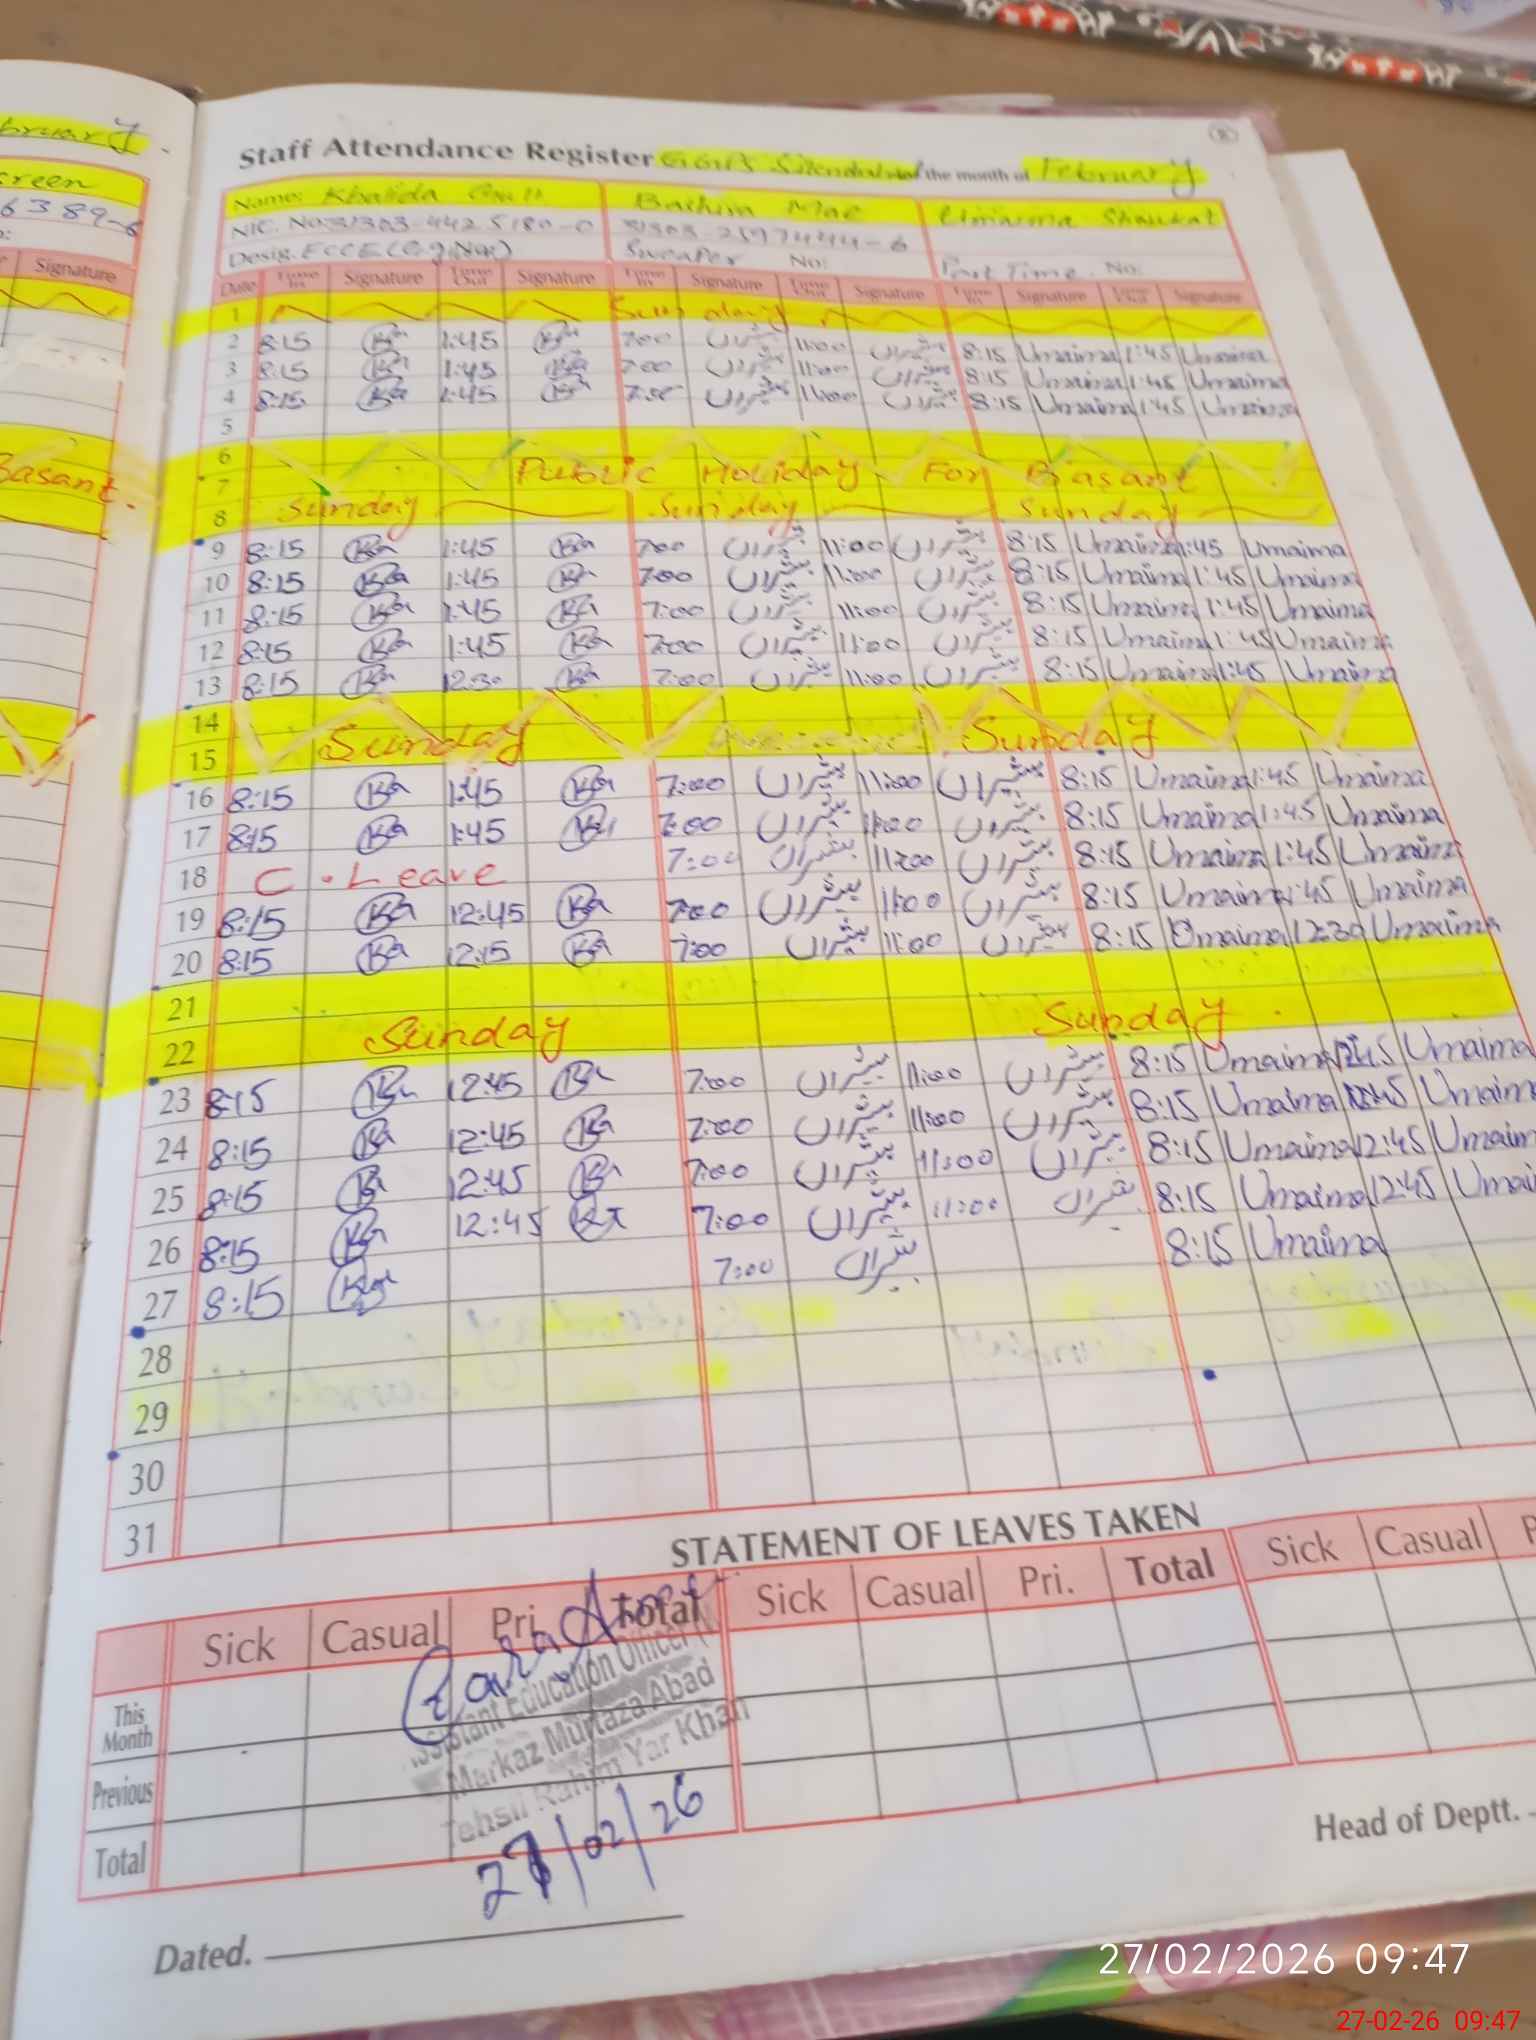 bruary
reen
6389-6
Signature
Basant.
Staff Attendance Register for the month of February
Name: Khalida Bashira Mae Umaima Shaukat
NIC. No: 31303-4425180-0 31303-2597444-6
Desig. ECCE Sweaper No: Part Time. No:
Date Time In Signature Time Out Signature Time In Signature Time Out Signature Time In Signature Time Out Signature
1 Sunday
2 8:15 Ka 1:45 Ka 7:00 بشیراں 11:00 بشیراں 8:15 Umaima 1:45 Umaima
3 8:15 Ka 1:45 Ka 7:00 بشیراں 11:00 بشیراں 8:15 Umaima 1:45 Umaima
4 8:15 Ka 1:45 Ka 7:00 بشیراں 11:00 بشیراں 8:15 Umaima 1:45 Umaima
5
6
7 Public Holiday For Basant
8 Sunday Sunday Sunday
9 8:15 Ka 1:45 Ka 7:00 بشیراں 11:00 بشیراں 8:15 Umaima 1:45 Umaima
10 8:15 Ka 1:45 Ka 7:00 بشیراں 11:00 بشیراں 8:15 Umaima 1:45 Umaima
11 8:15 Ka 1:45 Ka 7:00 بشیراں 11:00 بشیراں 8:15 Umaima 1:45 Umaima
12 8:15 Ka 1:45 Ka 7:00 بشیراں 11:00 بشیراں 8:15 Umaima 1:45 Umaima
13 8:15 Ka 12:30 Ka 7:00 بشیراں 11:00 بشیراں 8:15 Umaima 1:45 Umaima
14
15 Sunday Sunday
16 8:15 Ka 1:45 Ka 7:00 بشیراں 11:00 بشیراں 8:15 Umaima 1:45 Umaima
17 8:15 Ka 1:45 Ka 7:00 بشیراں 11:00 بشیراں 8:15 Umaima 1:45 Umaima
18 C. Leave 7:00 بشیراں 11:00 بشیراں 8:15 Umaima 1:45 Umaima
19 8:15 Ka 12:45 Ka 7:00 بشیراں 11:00 بشیراں 8:15 Umaima 1:45 Umaima
20 8:15 Ka 12:15 Ka 7:00 بشیراں 11:00 بشیراں 8:15 Umaima 12:30 Umaima
21
22 Sunday Sunday
23 8:15 Ka 12:45 Ka 7:00 بشیراں 11:00 بشیراں 8:15 Umaima 12:45 Umaima
24 8:15 Ka 12:45 Ka 7:00 بشیراں 11:00 بشیراں 8:15 Umaima 12:45 Umaima
25 8:15 Ka 12:45 Ka 7:00 بشیراں 11:00 بشیراں 8:15 Umaima 12:45 Umaim
26 8:15 Ka 12:45 Ka 7:00 بشیراں 11:00 بشیراں 8:15 Umaima 12:45 Umai
27 8:15 Ka 7:00 بشیراں 8:15 Umaima
28
29
30
31
STATEMENT OF LEAVES TAKEN
Sick Casual Pri. Total Sick Casual Pri. Total Sick Casual P
This Month
Previous
Total
ssistant Education Officer
Markaz Murtaza Abad
Tehsil Rahim Yar Khan
27/02/26
Head of Deptt.
Dated.
27/02/2026 09:47
27-02-26 09:47